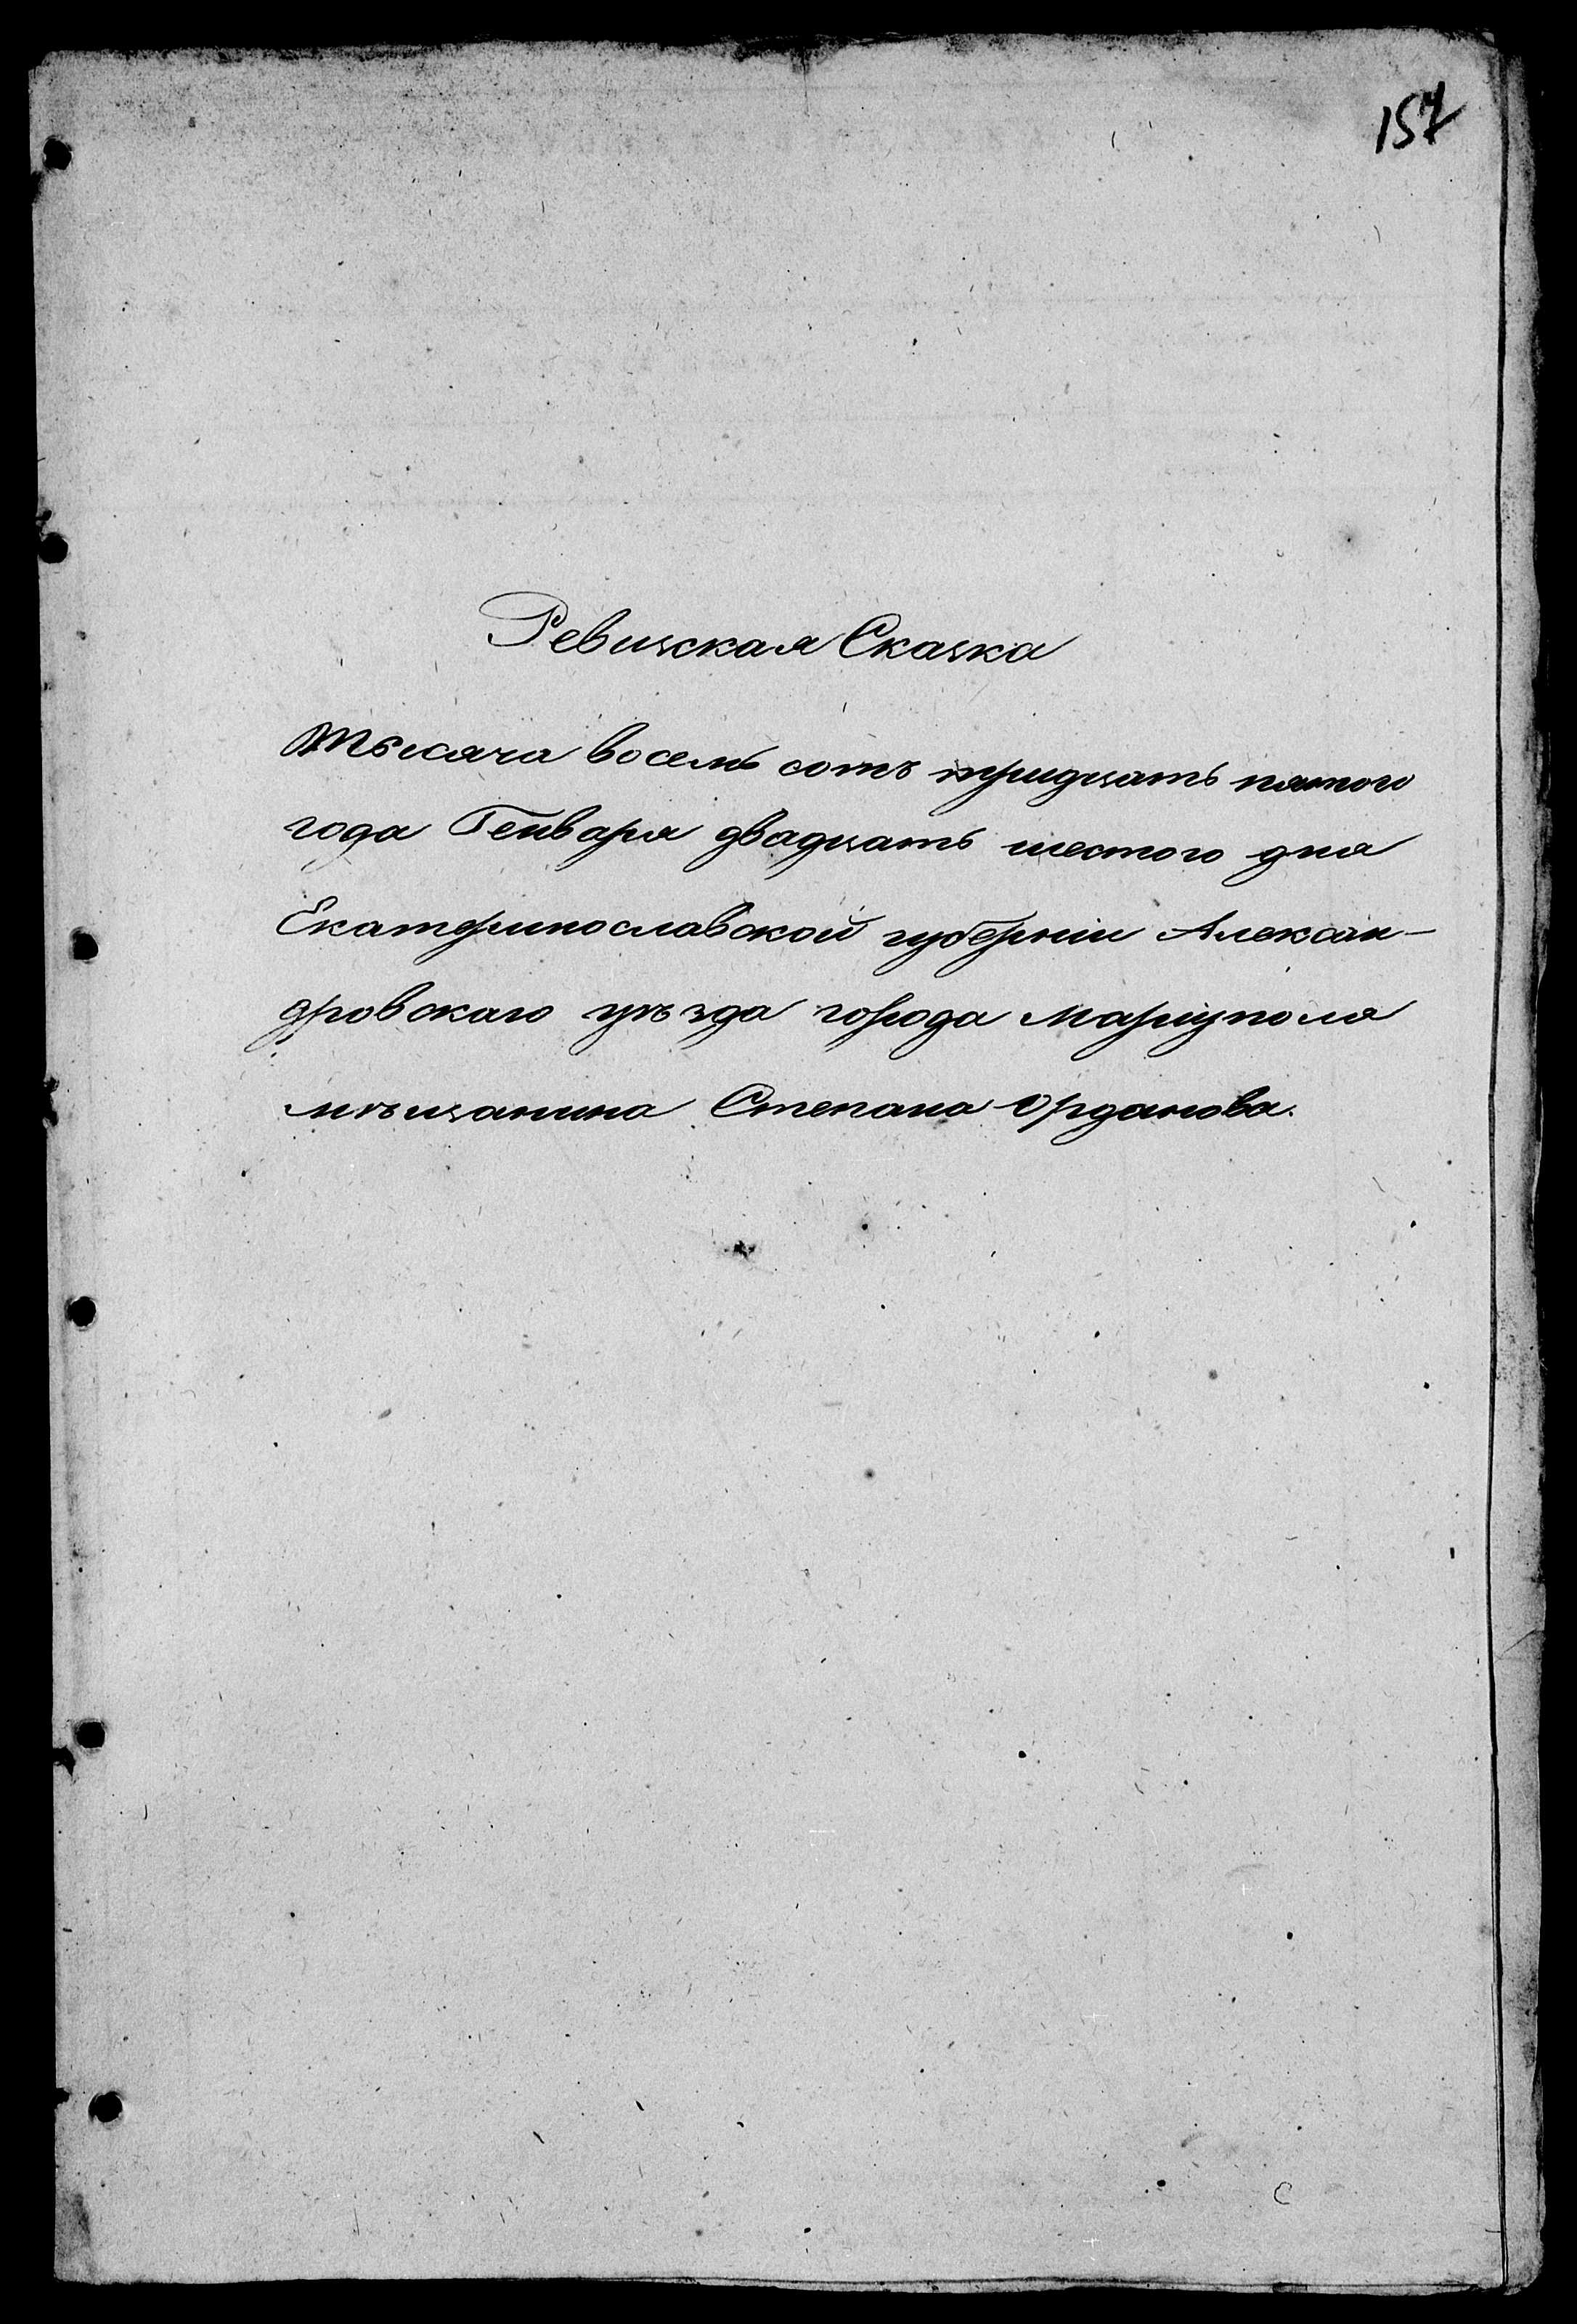 157
Ревизская Сказка
Тысяча восемь сотъ тридцать пятого
года Генваря двадцать шестого дня
Екатеринославской губерніи Алексан-
дровскаго уѣзда города Маріуполя
мѣщанина Степана Орданова.